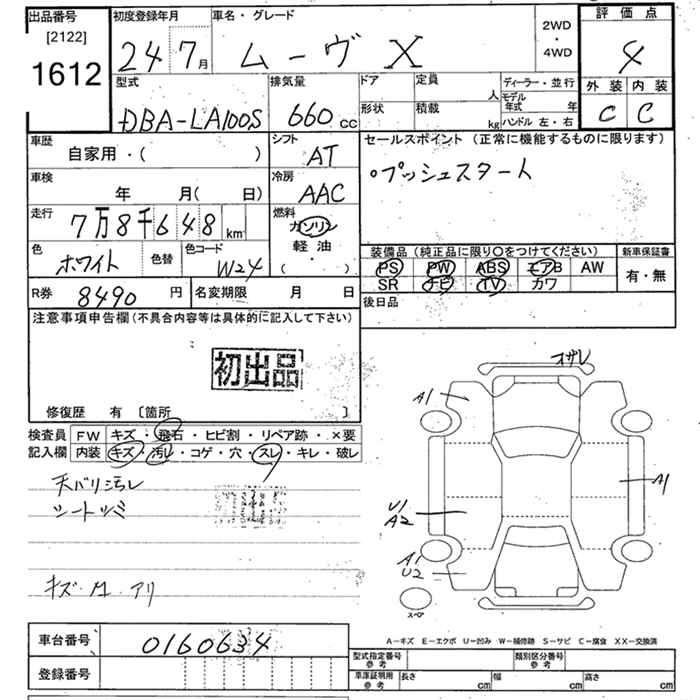 出品番号 [2122] 1612
初度登録年月 24 7月
車名・グレード ムーヴ X
2WD・4WD
評価点 4
外装 内装
C C
型式 DBA-LA100S
排気量 660 cc
ドア 定員 人
形状 積載 kg
ディーラー・並行
モデル年式 年
ハンドル 左・右
車歴 自家用・( )
シフト AT
セールスポイント (正常に機能するものに限ります)
プッシュスタート
車検 年 月( 日)
冷房 AAC
走行 7万8千648km
燃料 ガソリン 軽油 ( ・ )
色 ホワイト 色替 色コード W24
装備品 (純正品に限り〇をつけてください) 新車保証書
PS PW ABS エアB AW 有・無
SR ナビ TV カワ
R券 8490 円 名変期限 月 日
後日品
注意事項申告欄(不具合内容等は具体的に記入して下さい)
初出品
修復歴 有 〔箇所 〕
検査員記入欄 FW キズ・飛石・ヒビ割・リペア跡・×要
内装 キズ・汚レ・コゲ・穴・スレ・キレ・破レ
天バリ汚レ
シート
キズ アリ
コザレ
A1
A1
U1
A2
A1
U2
スペア
A-キズ E-エクボ U-凹み W-補修跡 S-サビ C-腐食 XX-交換済
車台番号 0160634
登録番号
型式指定番号 参考 類別区分番号 参考
車庫証明用 参考 長さ cm 幅 cm 高さ cm